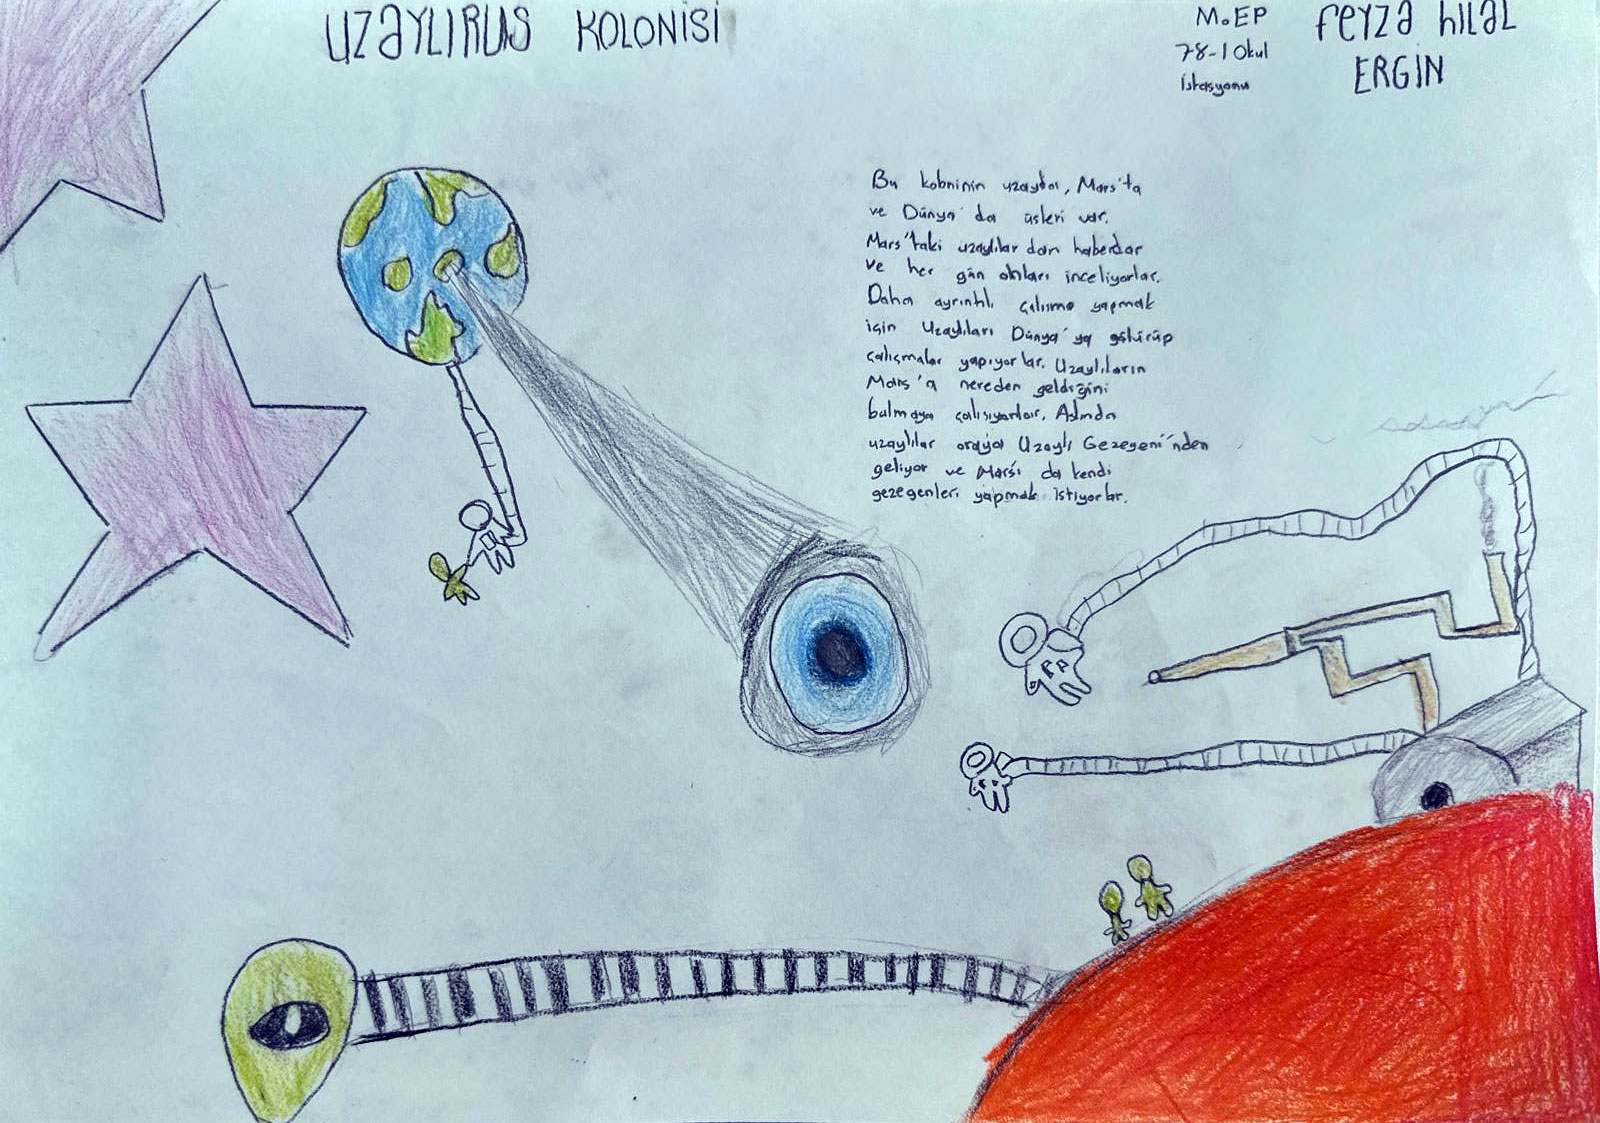 UZAYLIRUS KOLONİSİ
M.EP
78-1 Okul
İstasyonu
FEYZA HİLAL
ERGİN
Bu kolninin uzayda, Mars'ta
ve Dünya'da üsleri var.
Mars'taki uzaylılar dan haberdar
ve her gün onları inceliyorlar.
Daha ayrıntılı çalışma yapmak
için Uzaylıları Dünya'ya götürüp
çalışmalar yapıyorlar. Uzaylıların
Mars'a nereden geldiğini
bulmaya çalışıyorlar. Aslında
uzaylılar oraya Uzaylı Gezegeni'nden
geliyor ve Mars'ı da kendi
gezegenleri yapmak istiyorlar.